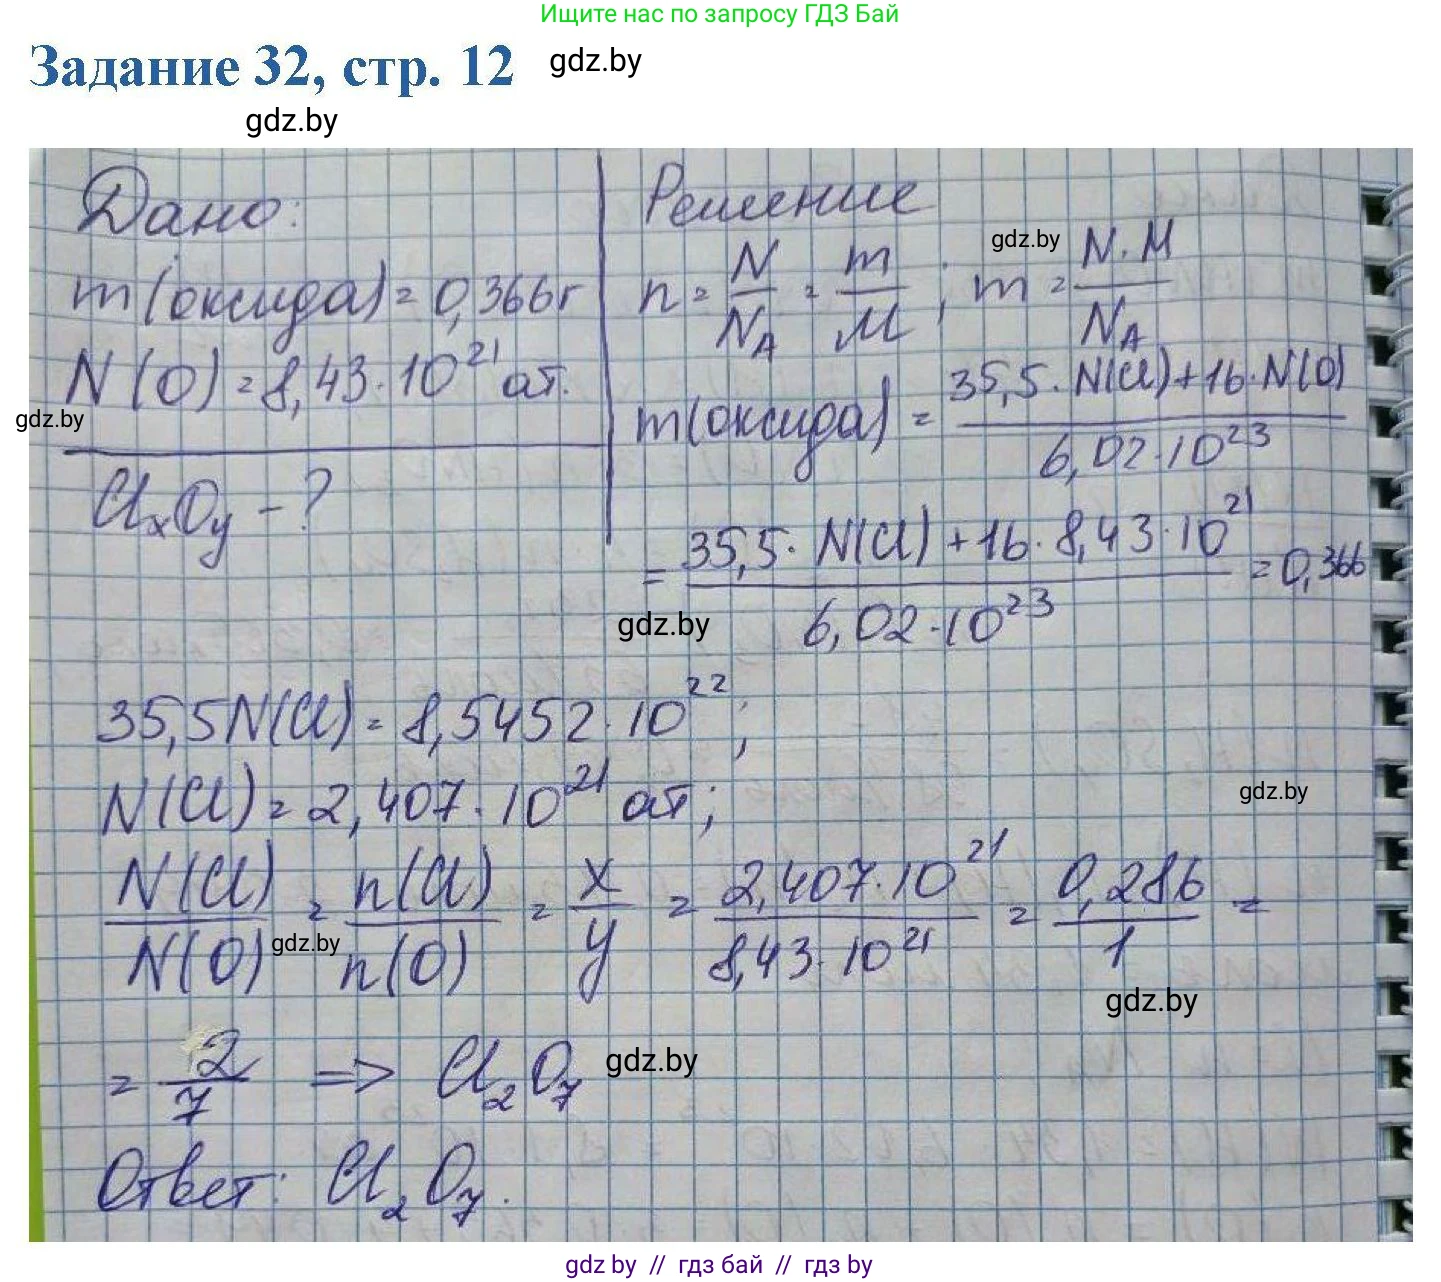 Ищите нас по запросу ГДЗ Бай
Задание 32, стр. 12 gdz.by
gdz.by
Дано:
m(оксида) = 0,366 г
N(O) = 8,43·10²¹ ат.
gdz.by
ClₓOᵧ - ?
Решение
n = N/N_A = m/M ; m = N·M/N_A
gdz.by
m(оксида) = (35,5·N(Cl)+16·N(O))/(6,02·10²³)
= (35,5·N(Cl)+16·8,43·10²¹)/(6,02·10²³) = 0,366
gdz.by
35,5N(Cl) = 8,5452·10²²;
N(Cl) = 2,407·10²¹ ат;
gdz.by
N(Cl)/N(O) = n(Cl)/n(O) = x/y = 2,407·10²¹/8,43·10²¹ = 0,286/1 =
gdz.by
gdz.by
= 2/7 => Cl₂O₇ gdz.by
Ответ: Cl₂O₇.
gdz by // гдз бай // гдз by